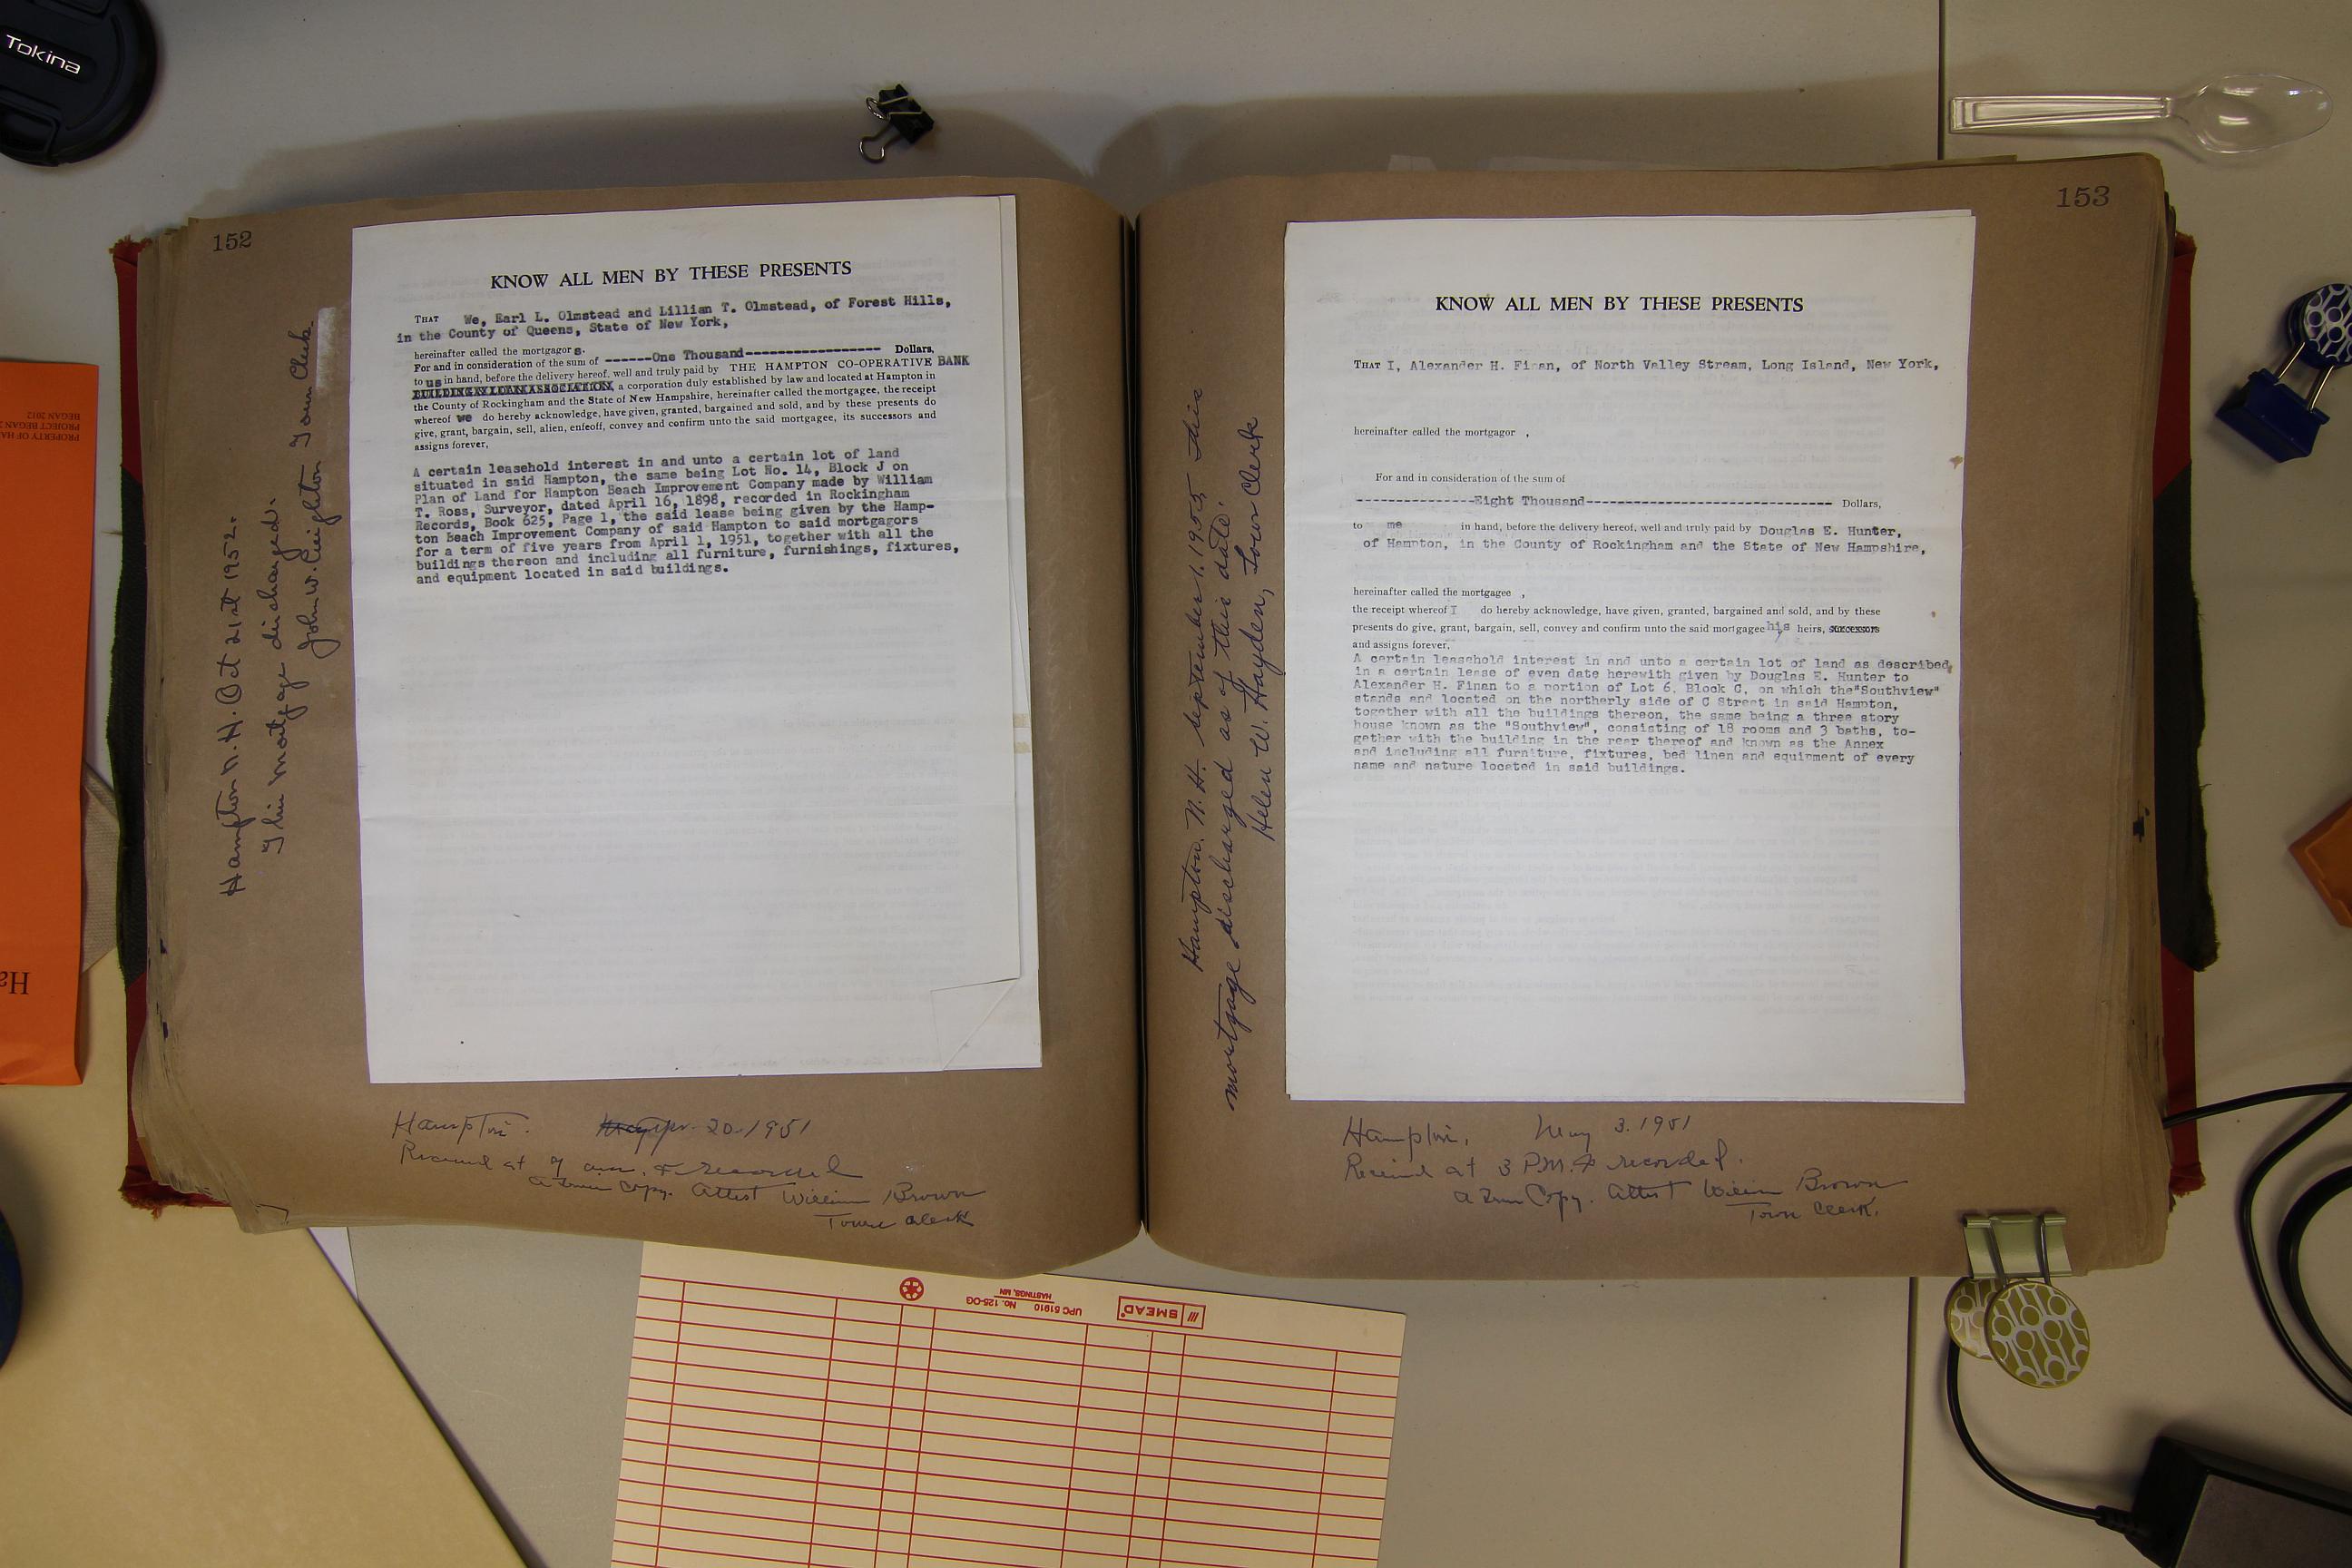 Tokina
PROPERTY OF HA
PROJECT BEGAN 2
BEGAN 2012
Ha
152
KNOW ALL MEN BY THESE PRESENTS
THAT We, Earl L. Olmstead and Lillian T. Olmstead, of Forest Hills,
in the County of Queens, State of New York,
hereinafter called the mortgagor s.
For and in consideration of the sum of ------One Thousand------------------ Dollars,
to us in hand, before the delivery hereof, well and truly paid by THE HAMPTON CO-OPERATIVE BANK
BUILDING & LOAN ASSOCIATION, a corporation duly established by law and located at Hampton in
the County of Rockingham and the State of New Hampshire, hereinafter called the mortgagee, the receipt
whereof we do hereby acknowledge, have given, granted, bargained and sold, and by these presents do
give, grant, bargain, sell, alien, enfeoff, convey and confirm unto the said mortgagee, its successors and
assigns forever,
A certain leasehold interest in and unto a certain lot of land
situated in said Hampton, the same being Lot No. 14, Block J on
Plan of Land for Hampton Beach Improvement Company made by William
T. Ross, Surveyor, dated April 16, 1898, recorded in Rockingham
Records, Book 625, Page 1, the said lease being given by the Hamp-
ton Beach Improvement Company of said Hampton to said mortgagors
for a term of five years from April 1, 1951, together with all the
buildings thereon and including all furniture, furnishings, fixtures,
and equipment located in said buildings.
Hampton N.H. Oct 21st 1952.
This mortgage discharged.
John W. Creighton Town Clerk.
Hampton. Apr. 20. 1951
Received at 9 am. & recorded
a True Copy. Attest William Brown
Town Clerk
153
KNOW ALL MEN BY THESE PRESENTS
THAT I, Alexander H. Finan, of North Valley Stream, Long Island, New York,
hereinafter called the mortgagor ,
For and in consideration of the sum of
-----------------Eight Thousand----------------------------------- Dollars,
to me in hand, before the delivery hereof, well and truly paid by Douglas E. Hunter,
of Hampton, in the County of Rockingham and the State of New Hampshire,
hereinafter called the mortgagee ,
the receipt whereof I do hereby acknowledge, have given, granted, bargained and sold, and by these
presents do give, grant, bargain, sell, convey and confirm unto the said mortgagee his heirs, successors
and assigns forever,
A certain leasehold interest in and unto a certain lot of land as described,
in a certain lease of even date herewith given by Douglas E. Hunter to
Alexander H. Finan to a portion of Lot 6, Block C, on which the"Southview"
stands and located on the northerly side of C Street in said Hampton,
together with all the buildings thereon, the same being a three story
house known as the "Southview", consisting of 18 rooms and 3 baths, to-
gether with the building in the rear thereof and known as the Annex
and including all furniture, fixtures, bed linen and equipment of every
name and nature located in said buildings.
Hampton. N.H. September 1. 1955 This
mortgage discharged as of this date.
Helen W. Hayden, Town Clerk
Hampton, May 3. 1951
Received at 3 P.M. & recorded.
a True Copy. Attest William Brown
Town Clerk.
SMEAD
UPC 51910
No. 125-OG
HASTINGS, MN